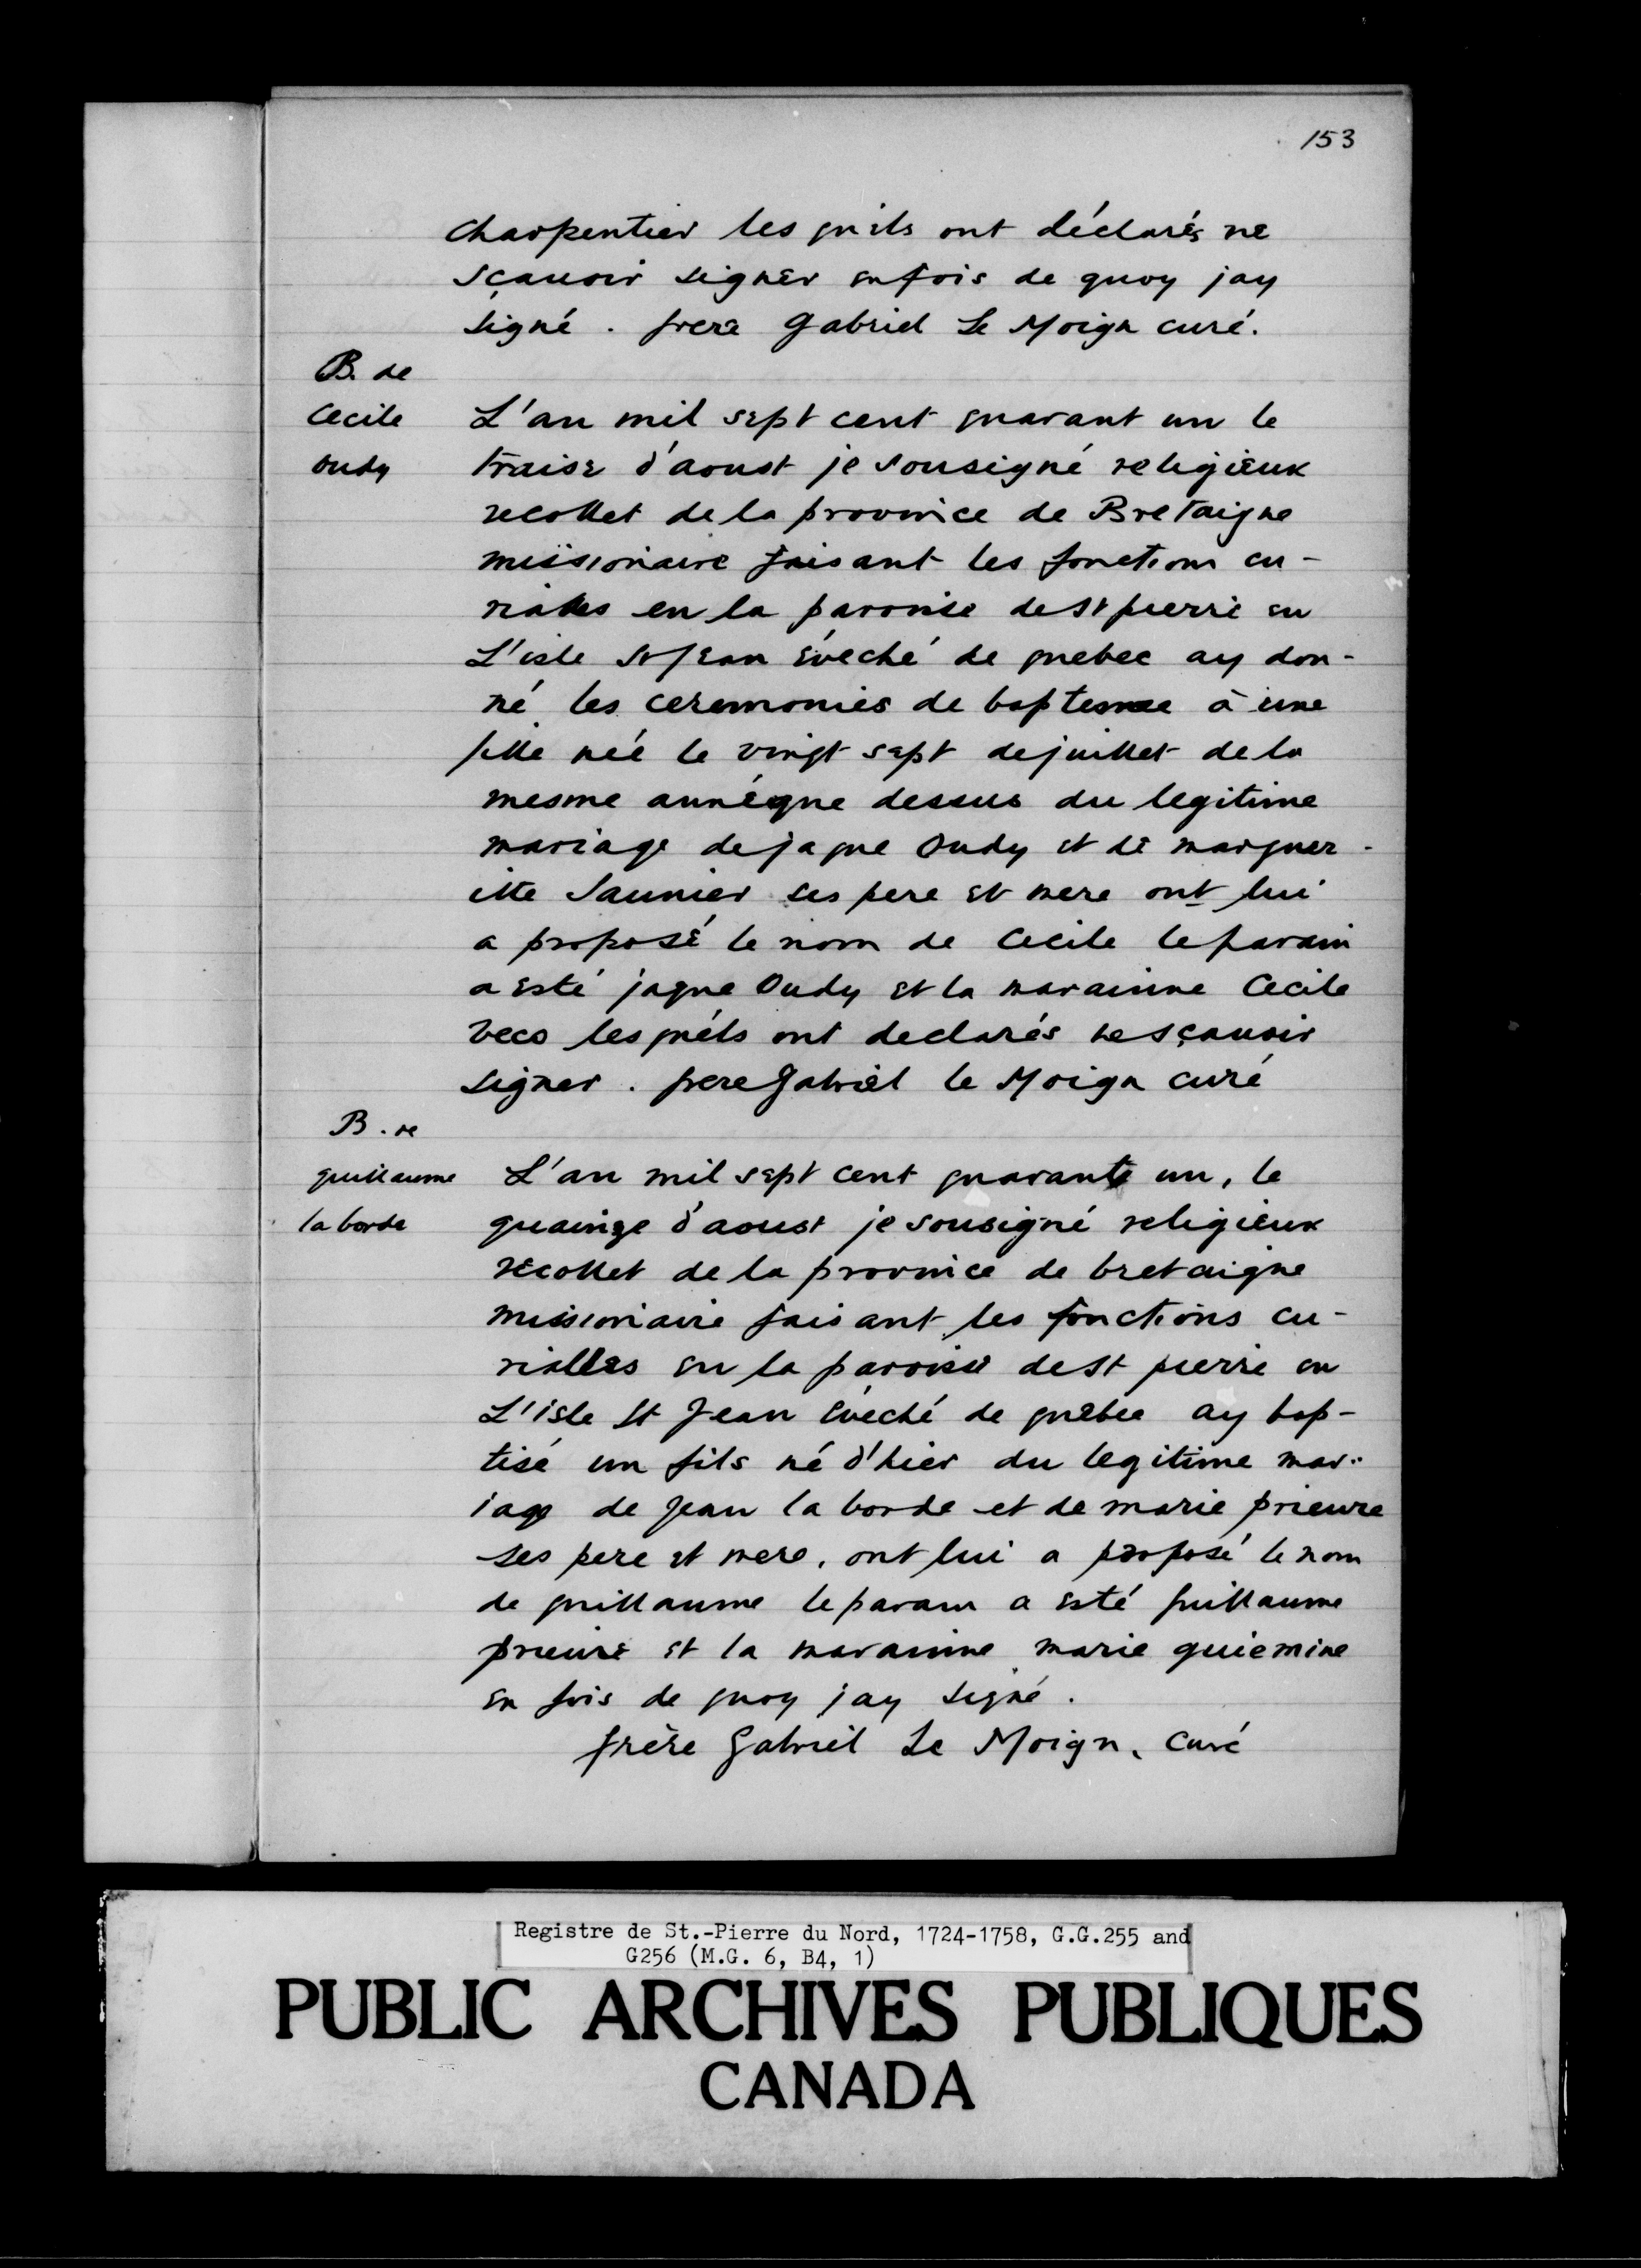 153
charpentier les quils ont déclarés ne
sçauoir signer en fois de quoy jay
signé . frere gabriel Le Moign curé.
B. de
Cecile
oudy
L'an mil sept cent quarant un le
traise d'aoust je sousigné religieux
recollet de la province de Bretaigne
missionaire faisant les fonctions cu-
rialles en la paroisse de st pierre en
L'isle St Jean évéché de quebec ay don-
né les ceremonies de baptemee à une
fille née le vingt sept de juillet de la
mesme annéque dessus du legitime
mariage de jaque Oudy et de marguer-
itte Saunier ses pere et mere ont lui
a proposé le nom de Cecile le parain
a esté jaque Oudy et la marainne Cecile
veco les quéls ont declarés ne sçauoir
signer . frere gabriel le Moign curé
B. de
guillaume
la borde
L'an mil sept cent quarante un, le
quainze d'aoust je sousigné religieux
récollet de la province de bretaigne
missionaire faisant les fonctions cu-
rialles en la paroisse de st pierre en
L'isle St Jean évéché de québec ay bap-
tisé un fils né d'hier du legitime mar-
iage de Jean la borde et de marie prieure
ses pere et mere, ont lui a proposé le nom
de guillaume le parain a esté guillaume
prieure et la marainne marie quiemine
en fois de quoy jay signé .
frère Gabriel Le Moign, curé
Registre de St.-Pierre du Nord, 1724-1758, G.G.255 and
G256 (M.G. 6, B4, 1)
PUBLIC ARCHIVES PUBLIQUES
CANADA